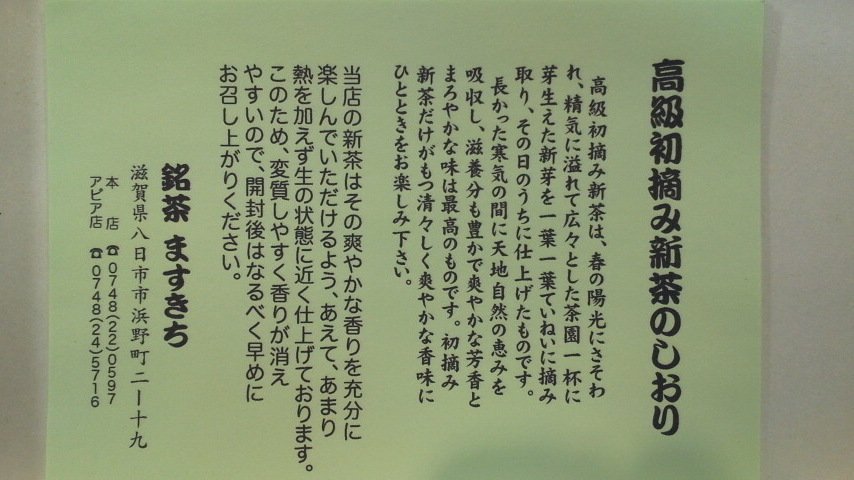 高級初摘み新茶のしおり
高級初摘み新茶は、春の陽光にさそわ
れ、精気に溢れて広々とした茶園一杯に
芽生えた新芽を一葉一葉ていねいに摘み
取り、その日のうちに仕上げたものです。
長かった寒気の間に天地自然の恵みを
吸収し、滋養分も豊かで爽やかな芳香と
まろやかな味は最高のものです。初摘み
新茶だけがもつ清々しく爽やかな香味に
ひとときをお楽しみ下さい。
当店の新茶はその爽やかな香りを充分に
楽しんでいただけるよう、あえて、あまり
熱を加えず生の状態に近く仕上げております。
このため、変質しやすく香りが消え
やすいので、開封後はなるべく早めに
お召し上がりください。
銘茶 ますきち
滋賀県八日市市浜野町二ー十九
本 店 ☎0748(22)0597
アピア店 ☎0748(24)5716